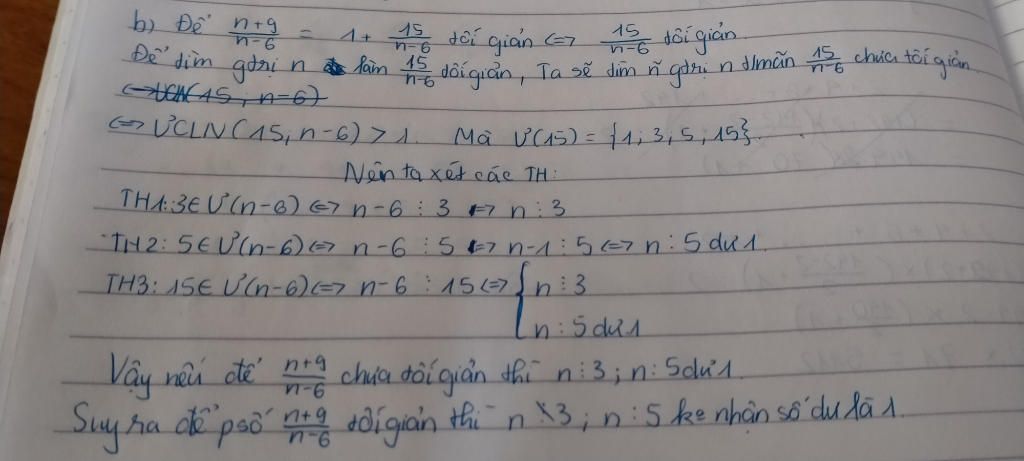 b) Để n+9/n-6 = 1 + 15/n-6 tối giản <=> 15/n-6 tối giản.
Để tìm gdrị n làm 15/n-6 tối giản, Ta sẽ tìm ~n gdrị n t/mãn 15/n-6 chưa tối giản
<=> ƯCLN(15, n-6) > 1. Mà Ư(15) = {1; 3; 5; 15}.
Nên ta xét các TH:
TH1: 3 ∈ Ư(n-6) <=> n-6 ⋮ 3 <=> n ⋮ 3
TH2: 5 ∈ Ư(n-6) <=> n-6 ⋮ 5 <=> n-1 ⋮ 5 <=> n : 5 dư 1
TH3: 15 ∈ Ư(n-6) <=> n-6 ⋮ 15 <=> { n ⋮ 3
n : 5 dư 1
Vậy nếu để n+9/n-6 chưa tối giản thì n ⋮ 3 ; n : 5 dư 1.
Suy ra để psố n+9/n-6 tối giản thì n ⋮̸ 3 ; n : 5 ko nhận số dư là 1.